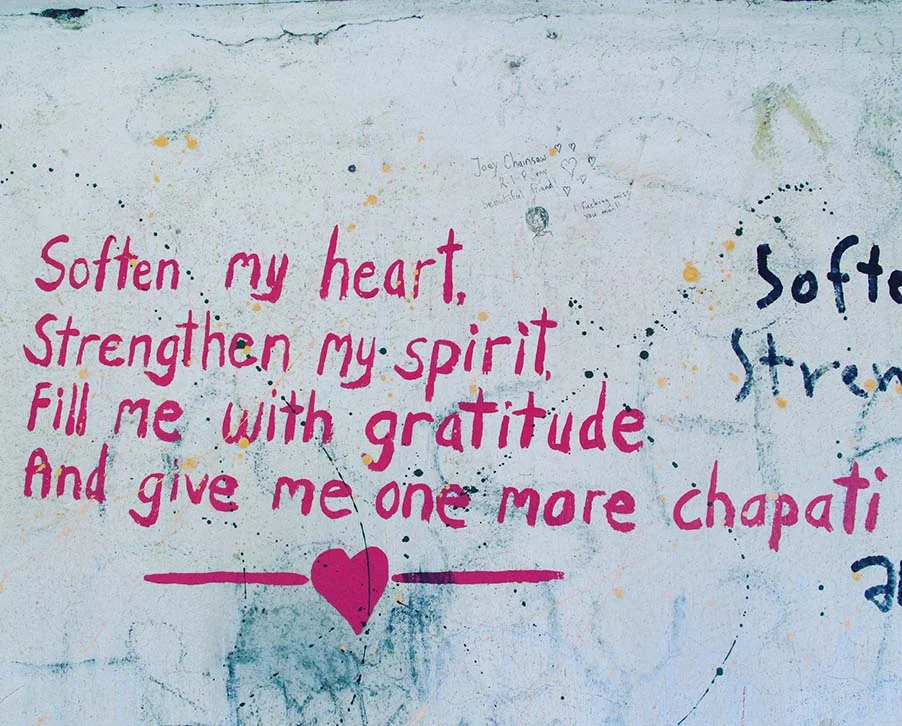 Joey Chainsaw
R.I.P my
beautiful friend
I fucking miss
you man!
Soften my heart,
Strengthen my spirit,
Fill me with gratitude
And give me one more chapati
Softe
Stren